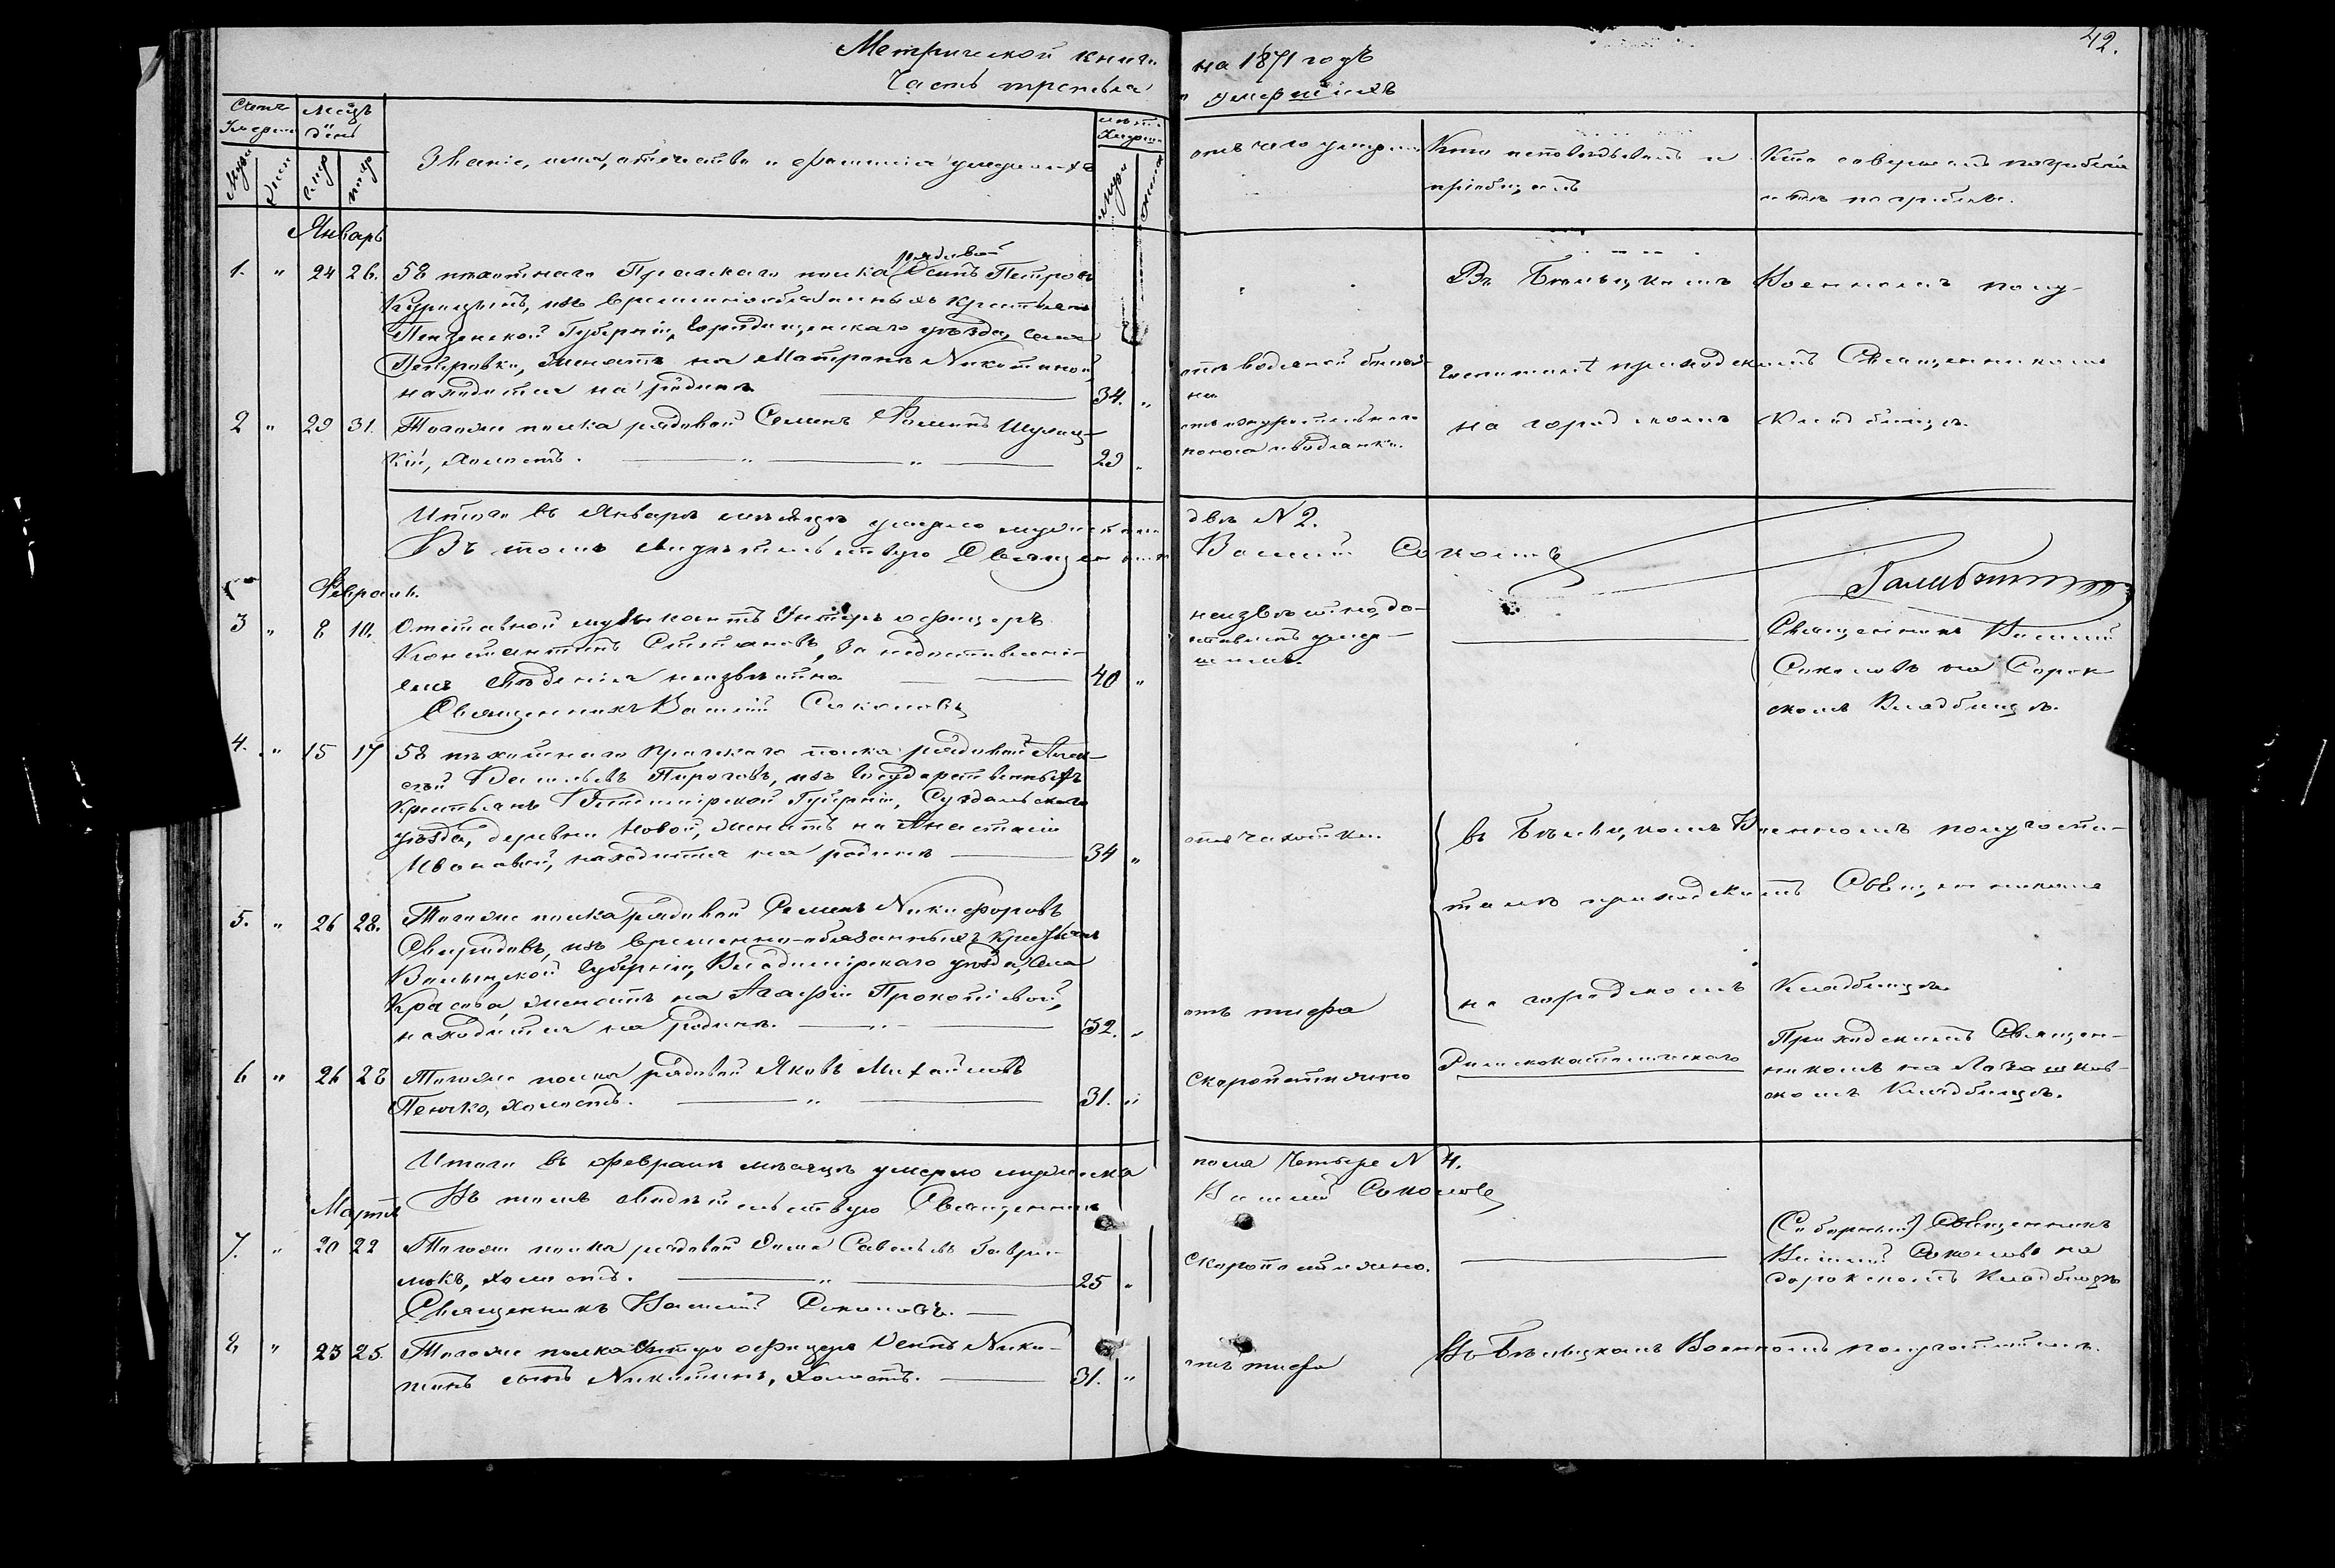 Метрической книги на 1871 годъ
42.
Часть третья о умершихъ
Счетъ Умерш.
Мѣсяцъ и день
Званіе, имя, отчество и фамилія умершихъ
Лѣта Умерш.
отъ чего умеръ
Кто исповѣдывалъ и пріобщалъ
Кто совершалъ погребеніе и гдѣ погребены.
Январь
1. " 24 26. 58 пѣхотнаго Пражскаго полка рядовой Осипъ Петровъ
Курицынъ, изъ временнообязанныхъ крестьянъ
Пензенской Губерніи, Городищенскаго уѣзда, села
Петровки, женатъ на Матронѣ Никитиной,
находится на родинѣ 34. "
отъ водяной болѣзни
2 " 29 31. Тогоже полка рядовой Семенъ Фоминъ
кій, холостъ. 29 "
отъ изнурительнаго поноса и водянки.
Въ Бѣльцкомъ Военномъ полу-
госпиталѣ приходскимъ Священникомъ
на городскомъ Кладбищѣ.
Итого въ Январѣ мѣсяцѣ умерло мужескаго двѣ N 2.
Въ томъ свидѣтельствую Священникъ Василій Соколовъ
Февраль.
3 " 8 10. Отставной музыкантъ Унтеръ офицеръ
Константинъ Степановъ, за недоставлені-
емъ свѣденія неизвѣстно 40 "
Священникъ Василій Соколовъ
неизвѣстно, до-
ставленъ умер-
шимъ.
Священникъ Василій
Соколовъ на Сорок-
скомъ Кладбищѣ.
4. " 15 17 58 пѣхотнаго Пражскаго полка рядовой Алек-
сѣй Васильевъ Пироговъ, изъ Государственныхъ
Крестьянъ Владимірской Губерніи, Суздальскаго
уѣзда, деревни Новой, женатъ на Анастасіи
Ивановой, находится на родинѣ 34 "
отъ чахотки.
5. " 26 28. Тогоже полка рядовой Семенъ Никифоровъ
Свиридовъ, изъ временно-обязанныхъ крестьянъ
Волынской Губерніи, Владимірскаго уѣзда, села
Красова, женатъ на Агафіи Прокопіевой,
находится на родинѣ. 32. "
отъ тифа
въ Бѣльцкомъ Военномъ полугоспи-
талѣ приходскимъ Священникомъ
на городскомъ Кладбищѣ.
6 " 26 28 Тогоже полка рядовой Яковъ Михайловъ
холостъ. 31. "
скоропостижно
Римскокатолическаго
Приходскимъ Священ-
никомъ на
скомъ Кладбищѣ.
Итого въ февралѣ мѣсяцѣ умерло мужеска пола Четыре N 4.
Въ томъ свидѣтельствую Священникъ Василій Соколовъ
Мартъ
7. " 20 22 Тогоже полка рядовой Савельевъ Гаври-
люкъ, холостъ. 25 "
Священникъ Василій Соколовъ.
скоропостижно.
(Соборный) Священникъ
Василій Соколовъ на
Сорокскомъ Кладбищѣ
8, " 23 25. Тогоже полка Унтеръ офицеръ Осипъ Ники-
тинъ сынъ Никитинъ, Холостъ. 31. "
отъ тифа
Въ Бѣльцкомъ Военномъ полугоспиталѣ.